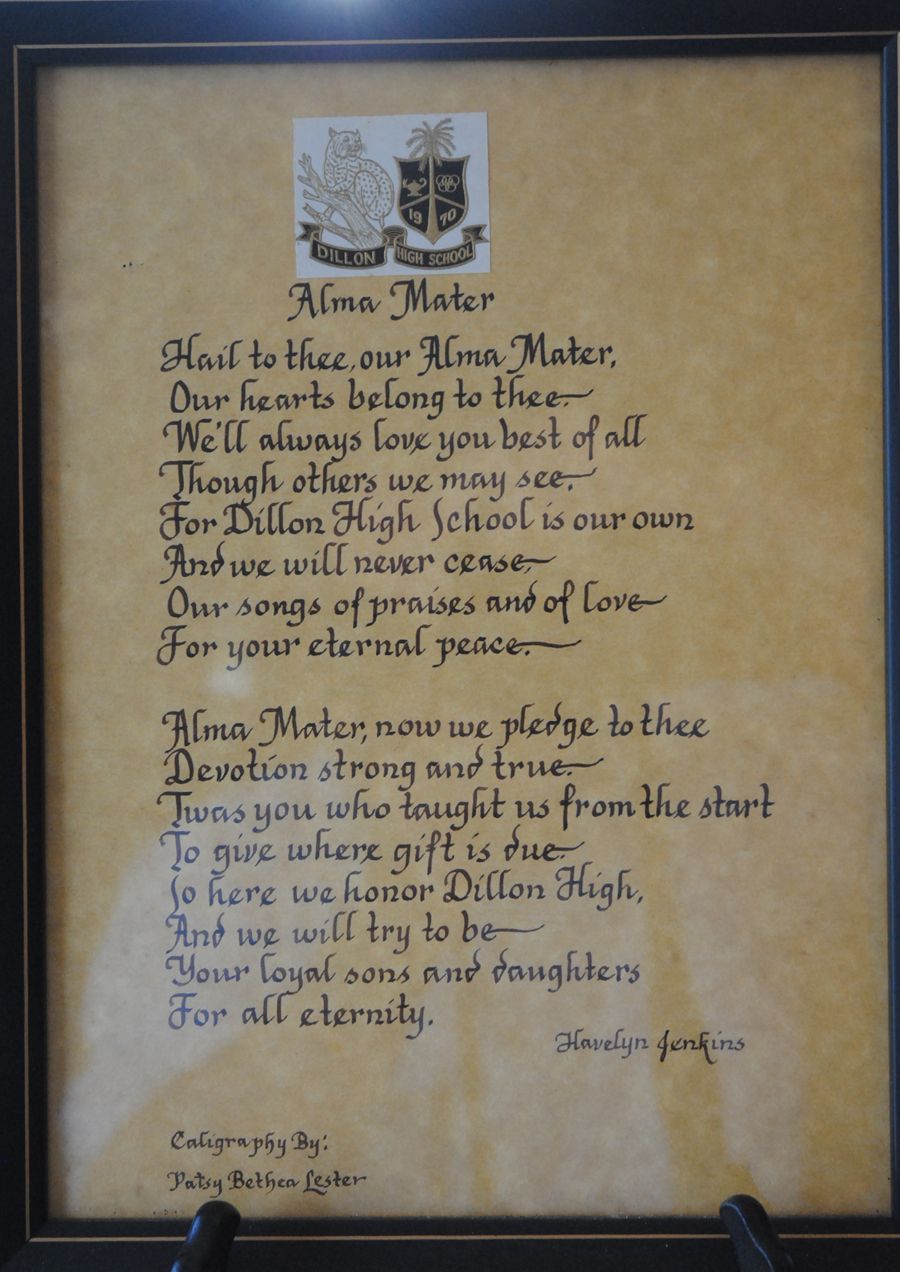 19 70
DILLON HIGH SCHOOL
Alma Mater
Hail to thee, our Alma Mater,
Our hearts belong to thee.
We'll always love you best of all
Though others we may see.
For Dillon High School is our own
And we will never cease,
Our songs of praises and of love
For your eternal peace.
Alma Mater, now we pledge to thee
Devotion strong and true.
Twas you who taught us from the start
To give where gift is due.
So here we honor Dillon High,
And we will try to be
Your loyal sons and daughters
For all eternity.
Havelyn Jenkins
Caligraphy By:
Patsy Bethea Lester